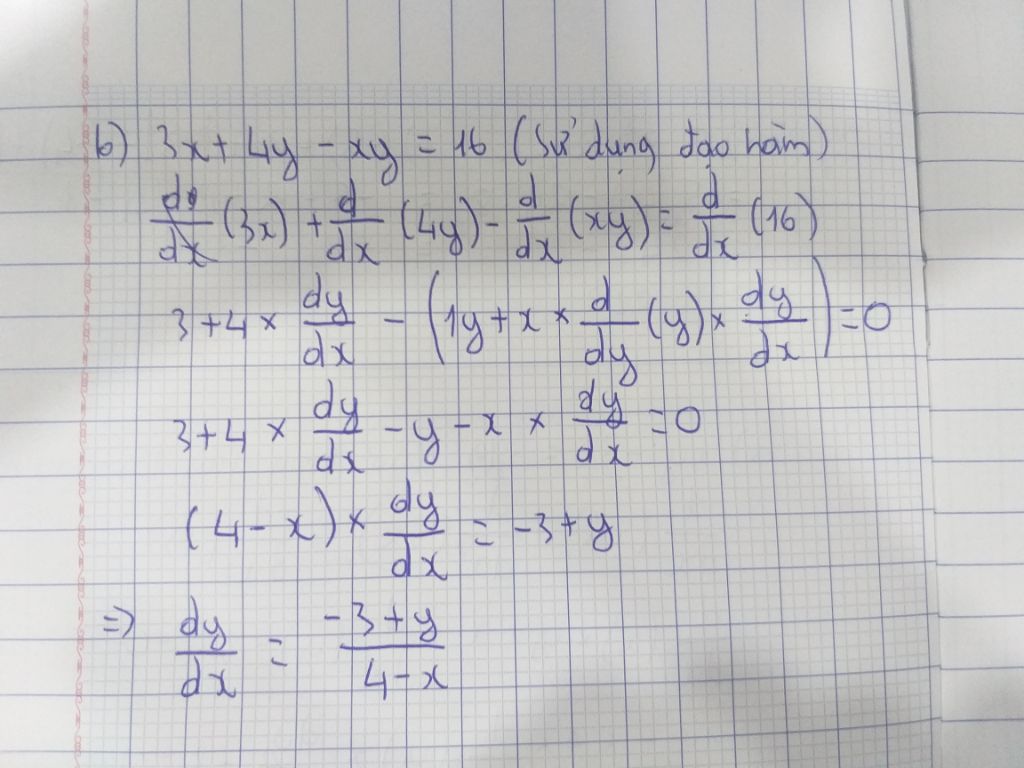 b) 3x + 4y - xy = 16 (Sử dụng đạo hàm)
d/dx (3x) + d/dx (4y) - d/dx (xy) = d/dx (16)
3 + 4 × dy/dx - (1y + x × d/dy (y) × dy/dx) = 0
3 + 4 × dy/dx - y - x × dy/dx = 0
(4 - x) × dy/dx = -3 + y
=> dy/dx = (-3 + y)/(4 - x)